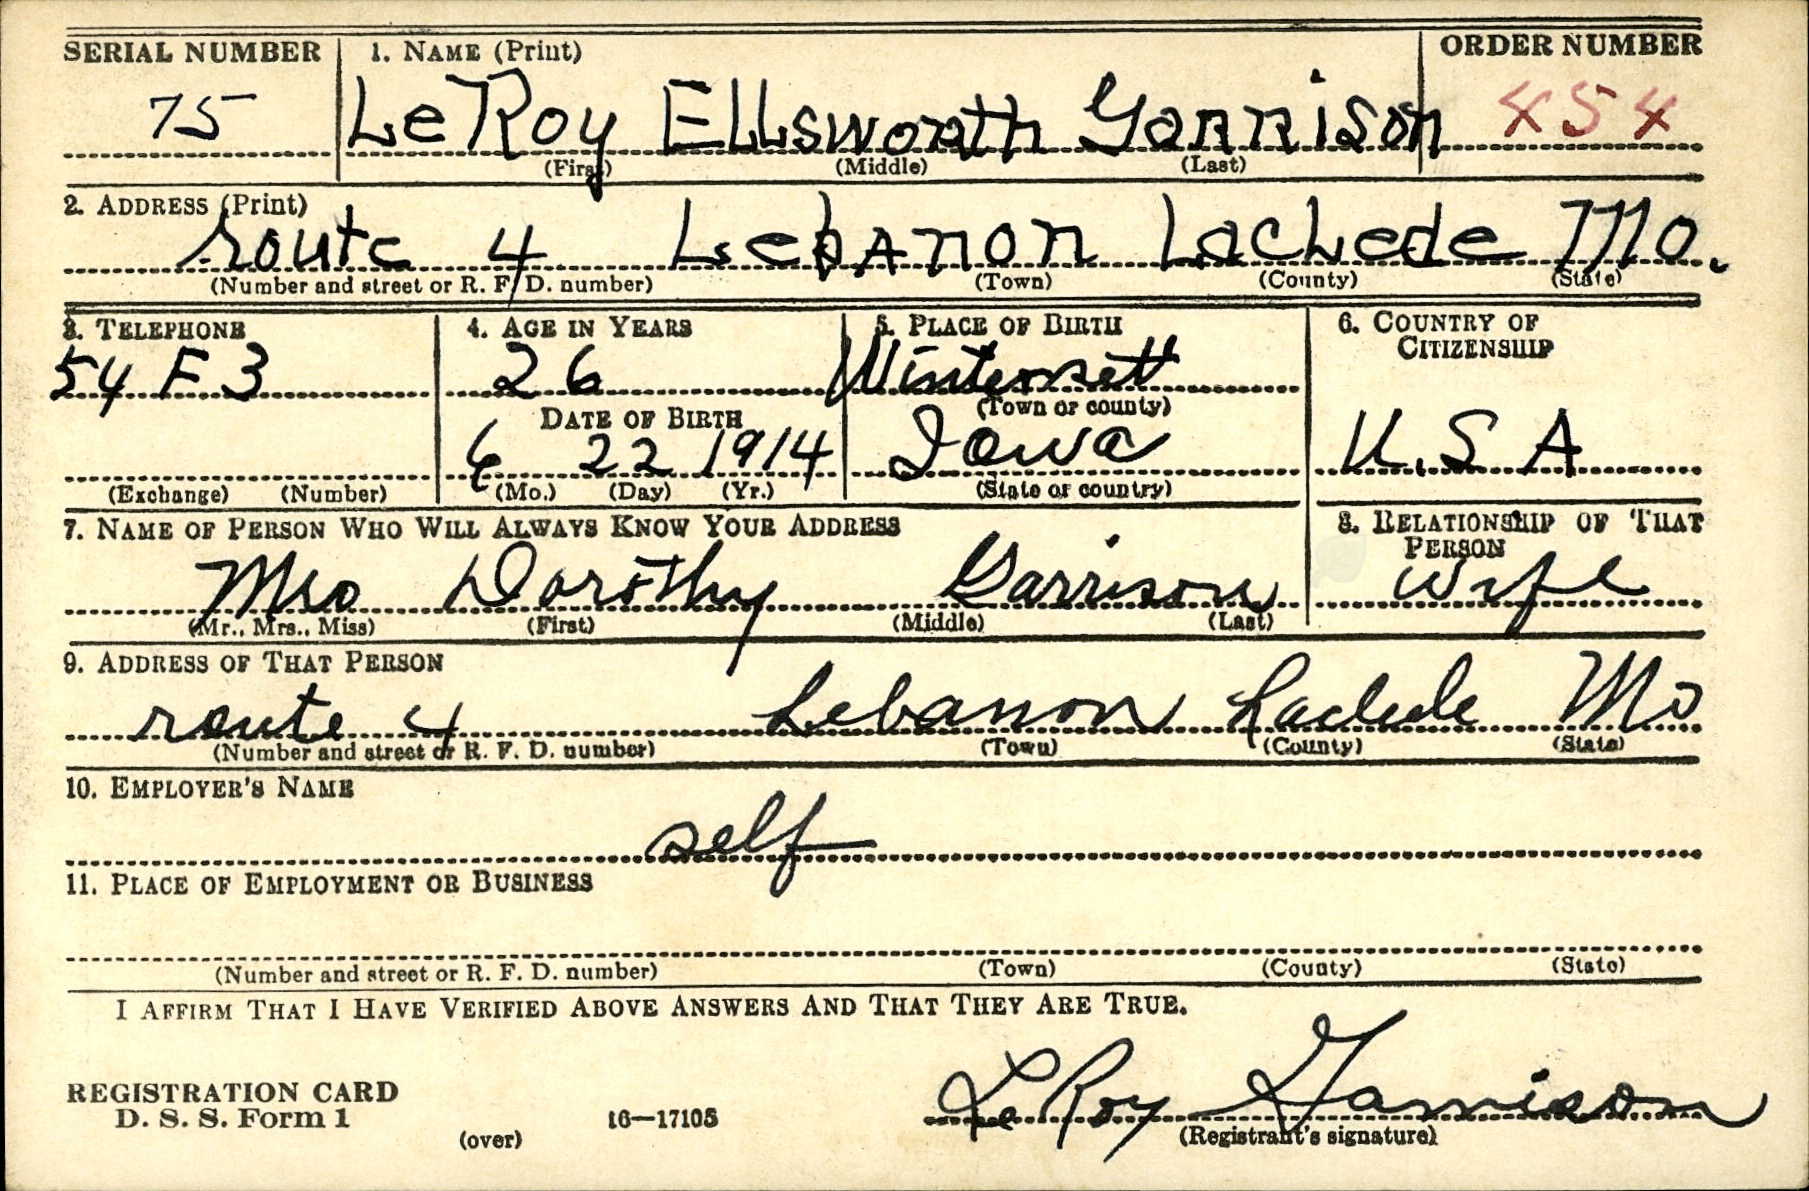 SERIAL NUMBER 1. NAME (Print) ORDER NUMBER
75 LeRoy Ellsworth Garrison 454
(First) (Middle) (Last)
2. ADDRESS (Print)
route 4 Lebanon Laclede Mo.
(Number and street or R. F. D. number) (Town) (County) (State)
3. TELEPHONE 4. AGE IN YEARS 5. PLACE OF BIRTH 6. COUNTRY OF
CITIZENSHIP
54 F 3 26 Wintersett
(Town or county)
DATE OF BIRTH
6 22 1914 Iowa U.S A
(Exchange) (Number) (Mo.) (Day) (Yr.) (State or country)
7. NAME OF PERSON WHO WILL ALWAYS KNOW YOUR ADDRESS 8. RELATIONSHIP OF THAT
PERSON
Mrs Dorothy Garrison wife
(Mr., Mrs., Miss) (First) (Middle) (Last)
9. ADDRESS OF THAT PERSON
route 4 Lebanon Laclede Mo
(Number and street or R. F. D. number) (Town) (County) (State)
10. EMPLOYER'S NAME
self
11. PLACE OF EMPLOYMENT OR BUSINESS
(Number and street or R. F. D. number) (Town) (County) (State)
I AFFIRM THAT I HAVE VERIFIED ABOVE ANSWERS AND THAT THEY ARE TRUE.
REGISTRATION CARD
D. S. S. Form 1 LeRoy Garrison
(over) 16—17105 (Registrant's signature)